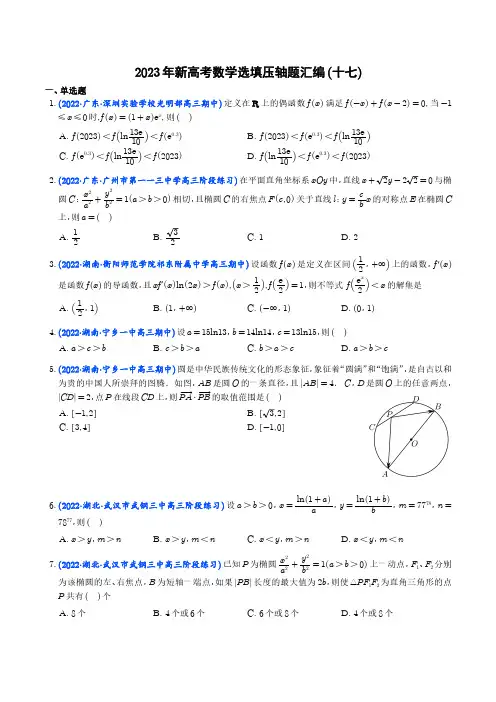 2023年新高考数学选填压轴题汇编(十七)
一、单选题
1. (2022·广东·深圳实验学校光明部高三期中) 定义在R上的偶函数f(x)满足f(-x)+f(x-2)=0, 当-1
≤x≤0时, f(x)=(1+x)eˣ, 则 ( )
A. f(2023)<f(ln 13e/10)<f(e^0.3) B. f(2023)<f(e^0.3)<f(ln 13e/10)
C. f(e^0.3)<f(ln 13e/10)<f(2023) D. f(ln 13e/10)<f(e^0.3)<f(2023)
2. (2022·广东·广州市第一一三中学高三阶段练习) 在平面直角坐标系xOy中, 直线x+√2y-2√2=0与椭
圆C: x²/a²+y²/b²=1(a>b>0)相切, 且椭圆C的右焦点F(c,0)关于直线l: y=c/b x的对称点E在椭圆C
上, 则a=( )
A. 1/2 B. √3/2 C. 1 D. 2
3. (2022·湖南·衡阳师范学院祁东附属中学高三期中) 设函数f(x)是定义在区间(1/2,+∞)上的函数, f'(x)
是函数f(x)的导函数, 且xf'(x)ln(2x)>f(x),(x>1/2),f(e/2)=1, 则不等式f(eˣ/2)<x的解集是
A. (1/2,1) B. (1,+∞) C. (-∞,1) D. (0,1)
4. (2022·湖南·宁乡一中高三期中) 设a=15ln13, b=14ln14, c=13ln15, 则 ( )
A. a>c>b B. c>b>a C. b>a>c D. a>b>c
5. (2022·湖南·宁乡一中高三期中) 圆是中华民族传统文化的形态象征, 象征着“圆满”和“饱满”, 是自古以和
为贵的中国人所崇拜的图腾. 如图, AB是圆O的一条直径, 且|AB|=4. C, D是圆O上的任意两点,
|CD|=2, 点P在线段CD上, 则PA·PB的取值范围是 ( )
A. [-1,2] B. [√3,2]
C. [3,4] D. [-1,0]
D
B
P
C
O
A
6. (2022·湖北·武汉市武钢三中高三阶段练习) 设a>b>0, x=ln(1+a)/a, y=ln(1+b)/b, m=77⁷⁸, n=
78⁷⁷, 则 ( )
A. x>y, m>n B. x>y, m<n C. x<y, m>n D. x<y, m<n
7. (2022·湖北·武汉市武钢三中高三阶段练习) 已知P为椭圆x²/a²+y²/b²=1(a>b>0)上一动点, F₁、F₂分别
为该椭圆的左、右焦点, B为短轴一端点, 如果|PB|长度的最大值为2b, 则使△PF₁F₂为直角三角形的点
P共有 ( ) 个
A. 8个 B. 4个或6个 C. 6个或8个 D. 4个或8个